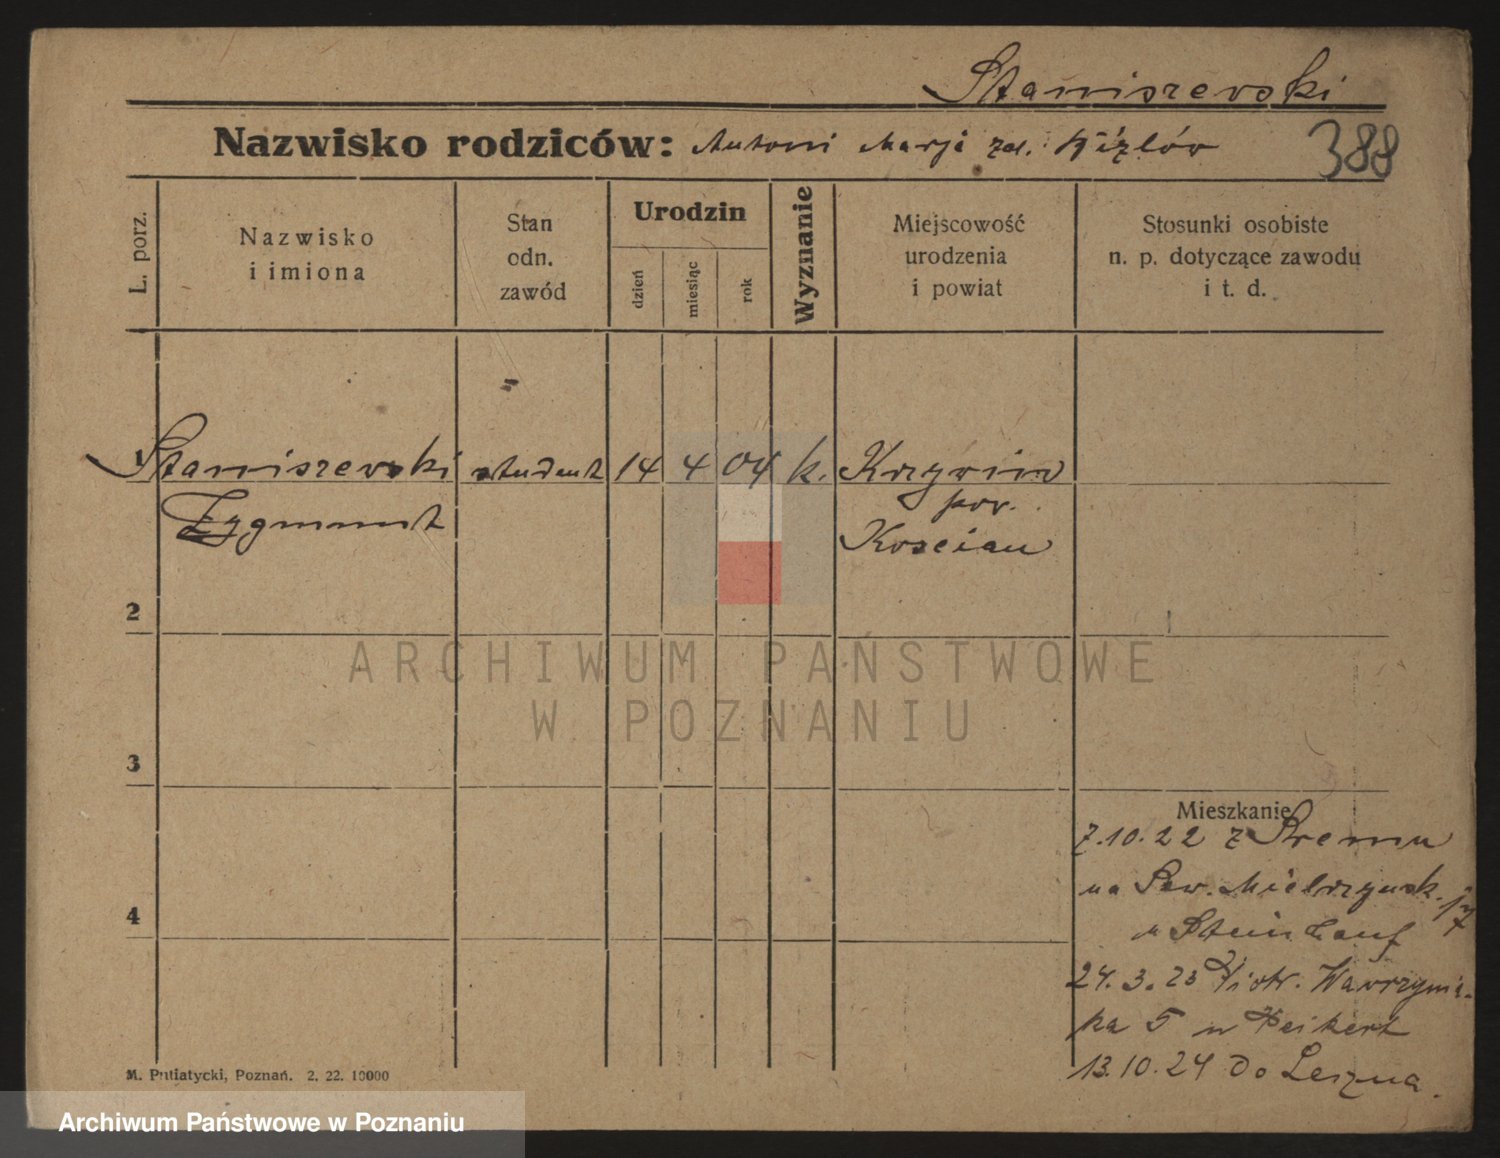 Staniszewski
Nazwisko rodziców: Antoni Marja zd. Kizlów
388
L. porz.
Nazwisko
i imiona
Stan
odn.
zawód
Urodzin
dzień
miesiąc
rok
Wyznanie
Miejscowość
urodzenia
i powiat
Stosunki osobiste
n. p. dotyczące zawodu
i t. d.
1 Staniszewski student 14 4 04 k. Krzywin
Zygmunt
pow.
Koscian
2
ARCHIWUM PAŃSTWOWE
W POZNANIU
3
Mieszkanie
7.10.22 z Sremu
na Sew. Mielrzynsk.
u Steinhauf
4
24.3.23 Piotr. Wawrzynia-
ka 5 u Heikert
13.10.24 do Leszna.
M. Putiatycki, Poznań. 2. 22. 10000
Archiwum Państwowe w Poznaniu